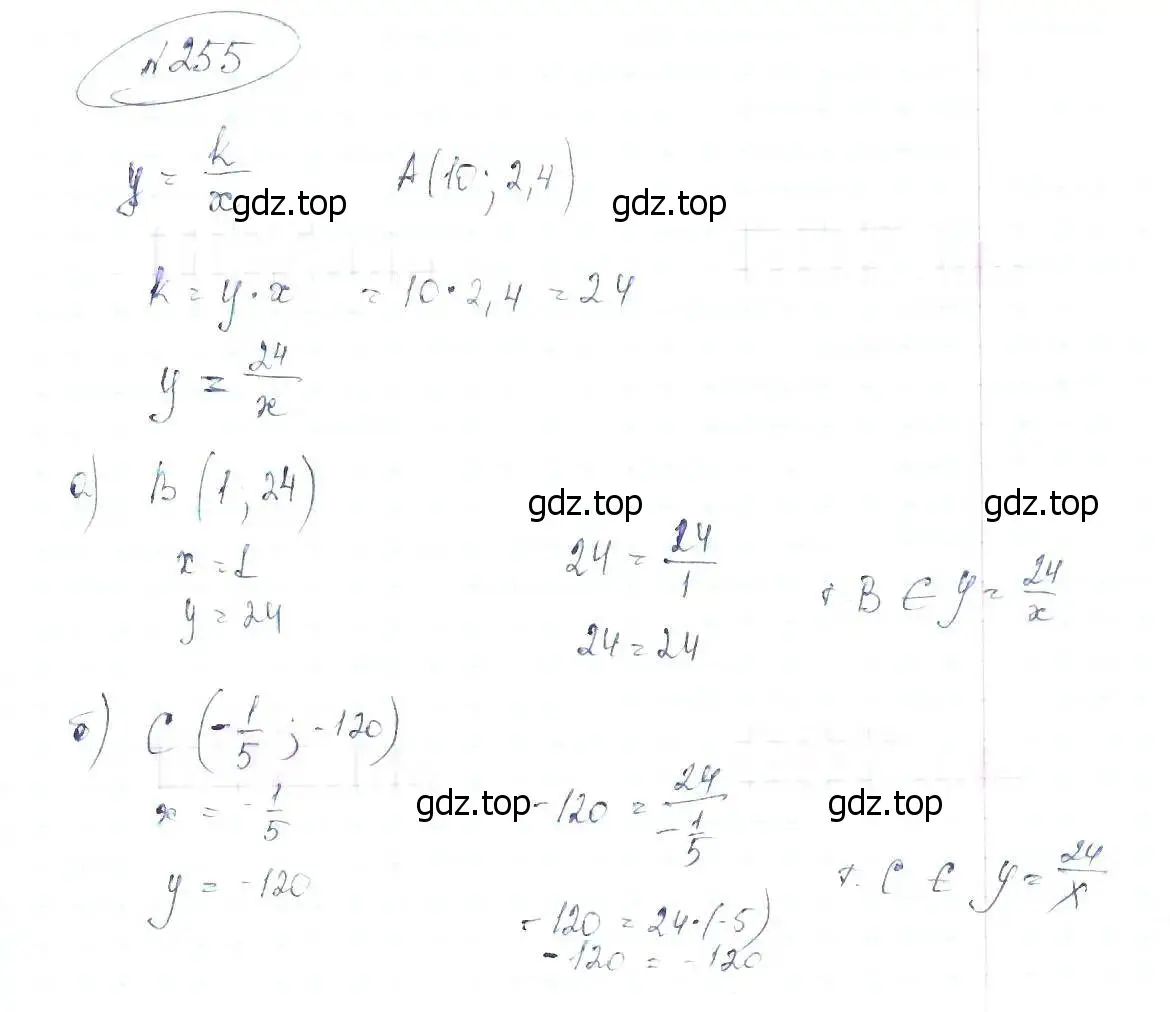 №255
y = k/x A(10; 2,4)
gdz.top gdz.top
k = y·x = 10·2,4 = 24
y = 24/x
а) B(1; 24)
gdz.top gdz.top
x = 1 24 = 24/1
y = 24 24 = 24 т. B ∈ y = 24/x
б) C(-1/5; -120)
x = -1/5 gdz.top -120 = 24/(-1/5) gdz.top
y = -120 т. C ∈ y = 24/x
-120 = 24·(-5)
-120 = -120